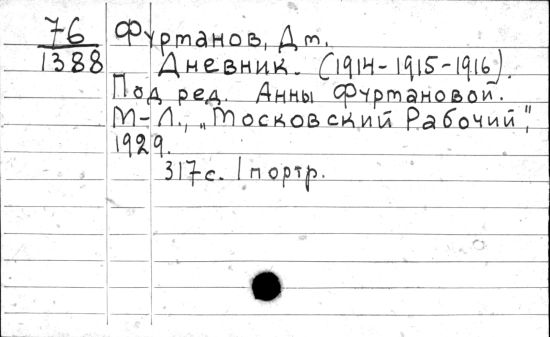 76 Фуртанов, Дм.
1388 Дневник. (1914-1915-1916).
Под ред. Анны Фуртановой.
М-Л., „Московский Рабочий",
1929.
317с. 1 портр.